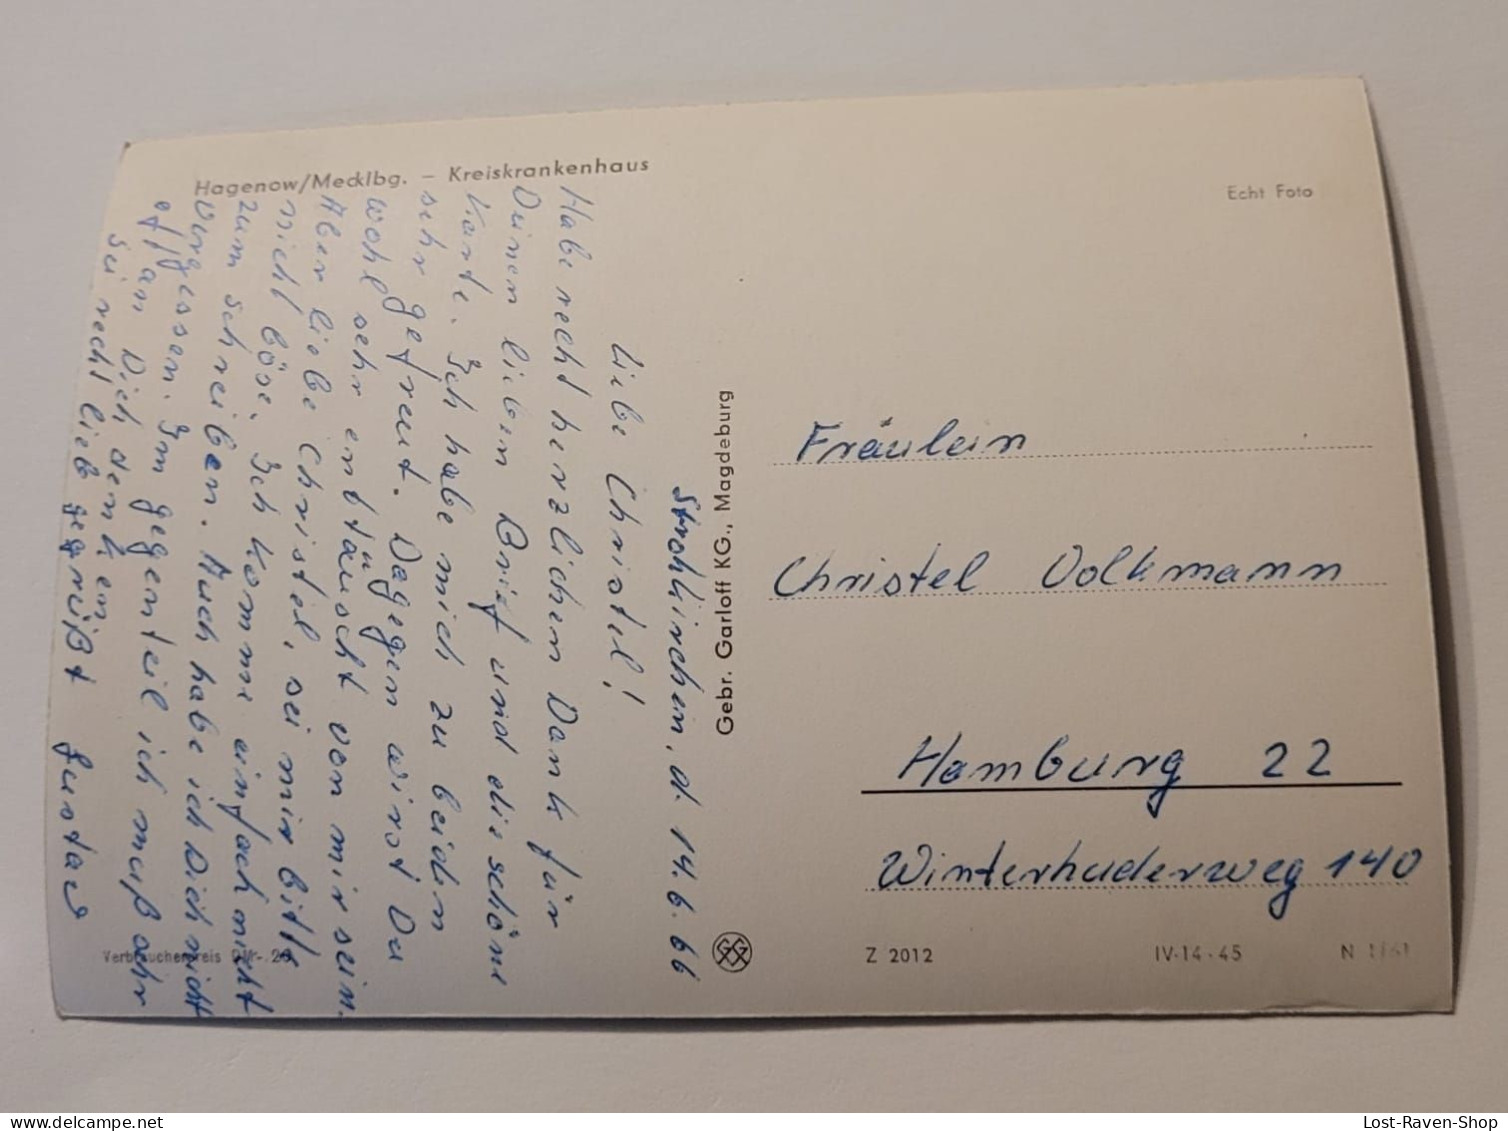 Hagenow/Mecklbg. – Kreiskrankenhaus
Echt Foto
Strohkirchen, d. 14.6.66
Liebe Christel!
Habe recht herzlichen Dank für
Deinen lieben Brief und die schöne
Karte. Ich habe mich zu beiden
sehr gefreut. Dagegen wirst Du
wohl sehr entäuscht von mir sein.
Aber liebe Christel, sei mir bitte
nicht böse. Ich komme einfach nicht
zum schreiben. Auch habe ich Dich nicht
vergessen. Im gegenteil ich muß sehr
oft an Dich denken
Sei recht lieb gegrüßt Gustav
Gebr. Garloff KG., Magdeburg
Fräulein
Christel Volkmann
Hamburg 22
Winterhuderweg 140
Verbraucherpreis DM -.20
Z 2012
IV-14-45
N 1/61
Lost-Raven-Shop